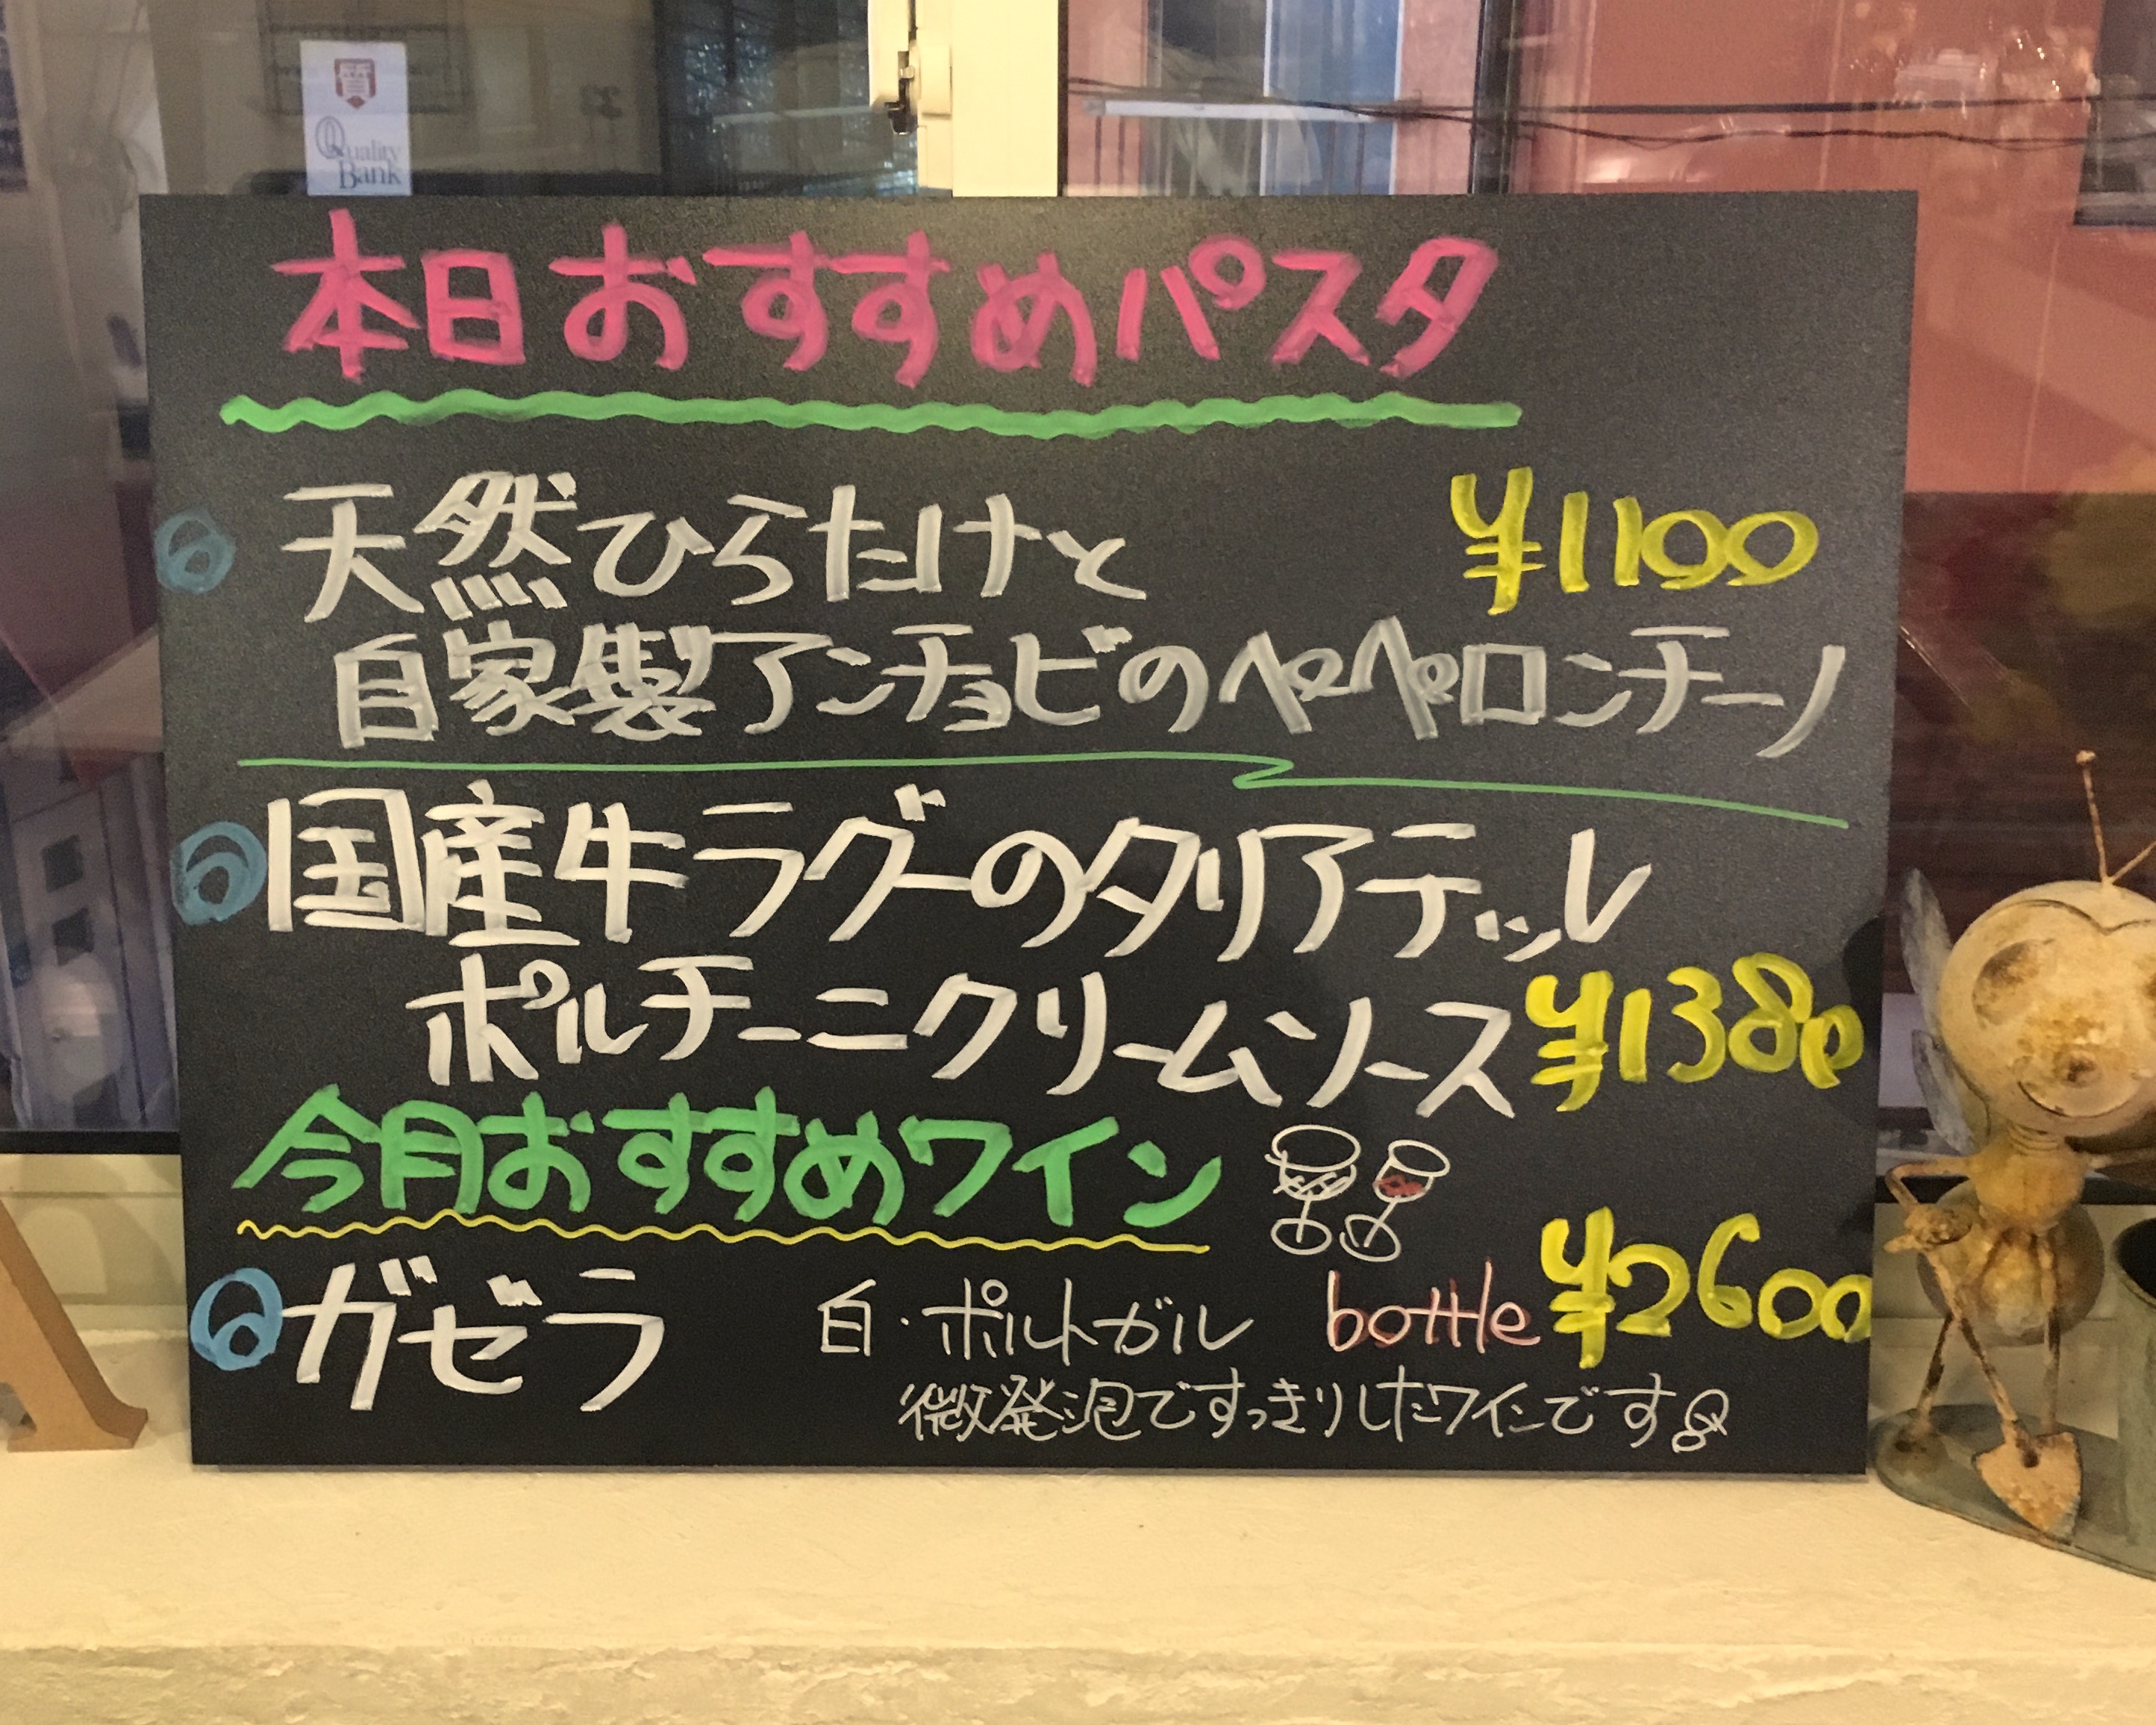 Quality
Bank
本日おすすめパスタ
天然ひらたけと ¥1100
自家製アンチョビのペペロンチーノ
国産牛ラグーのタリアテッレ
ポルチーニクリームソース ¥1380
今月おすすめワイン
ガゼラ 白・ポルトガル bottle ¥2600
微発泡ですっきりしたワインです